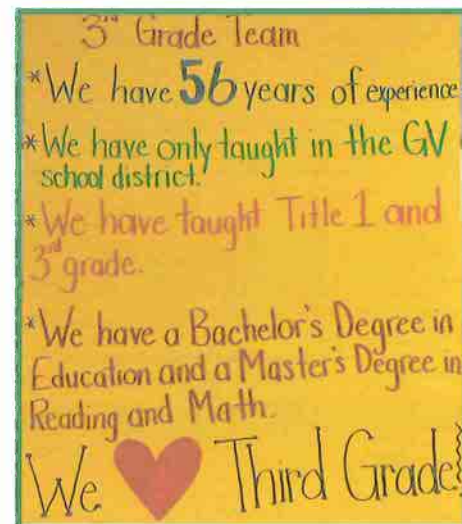 3rd Grade Team
*We have 56 years of experience
*We have only taught in the GV
school district.
*We have taught Title 1 and
3rd grade.
*We have a Bachelor's Degree in
Education and a Master's Degree in
Reading and Math.
We ❤ Third Grade